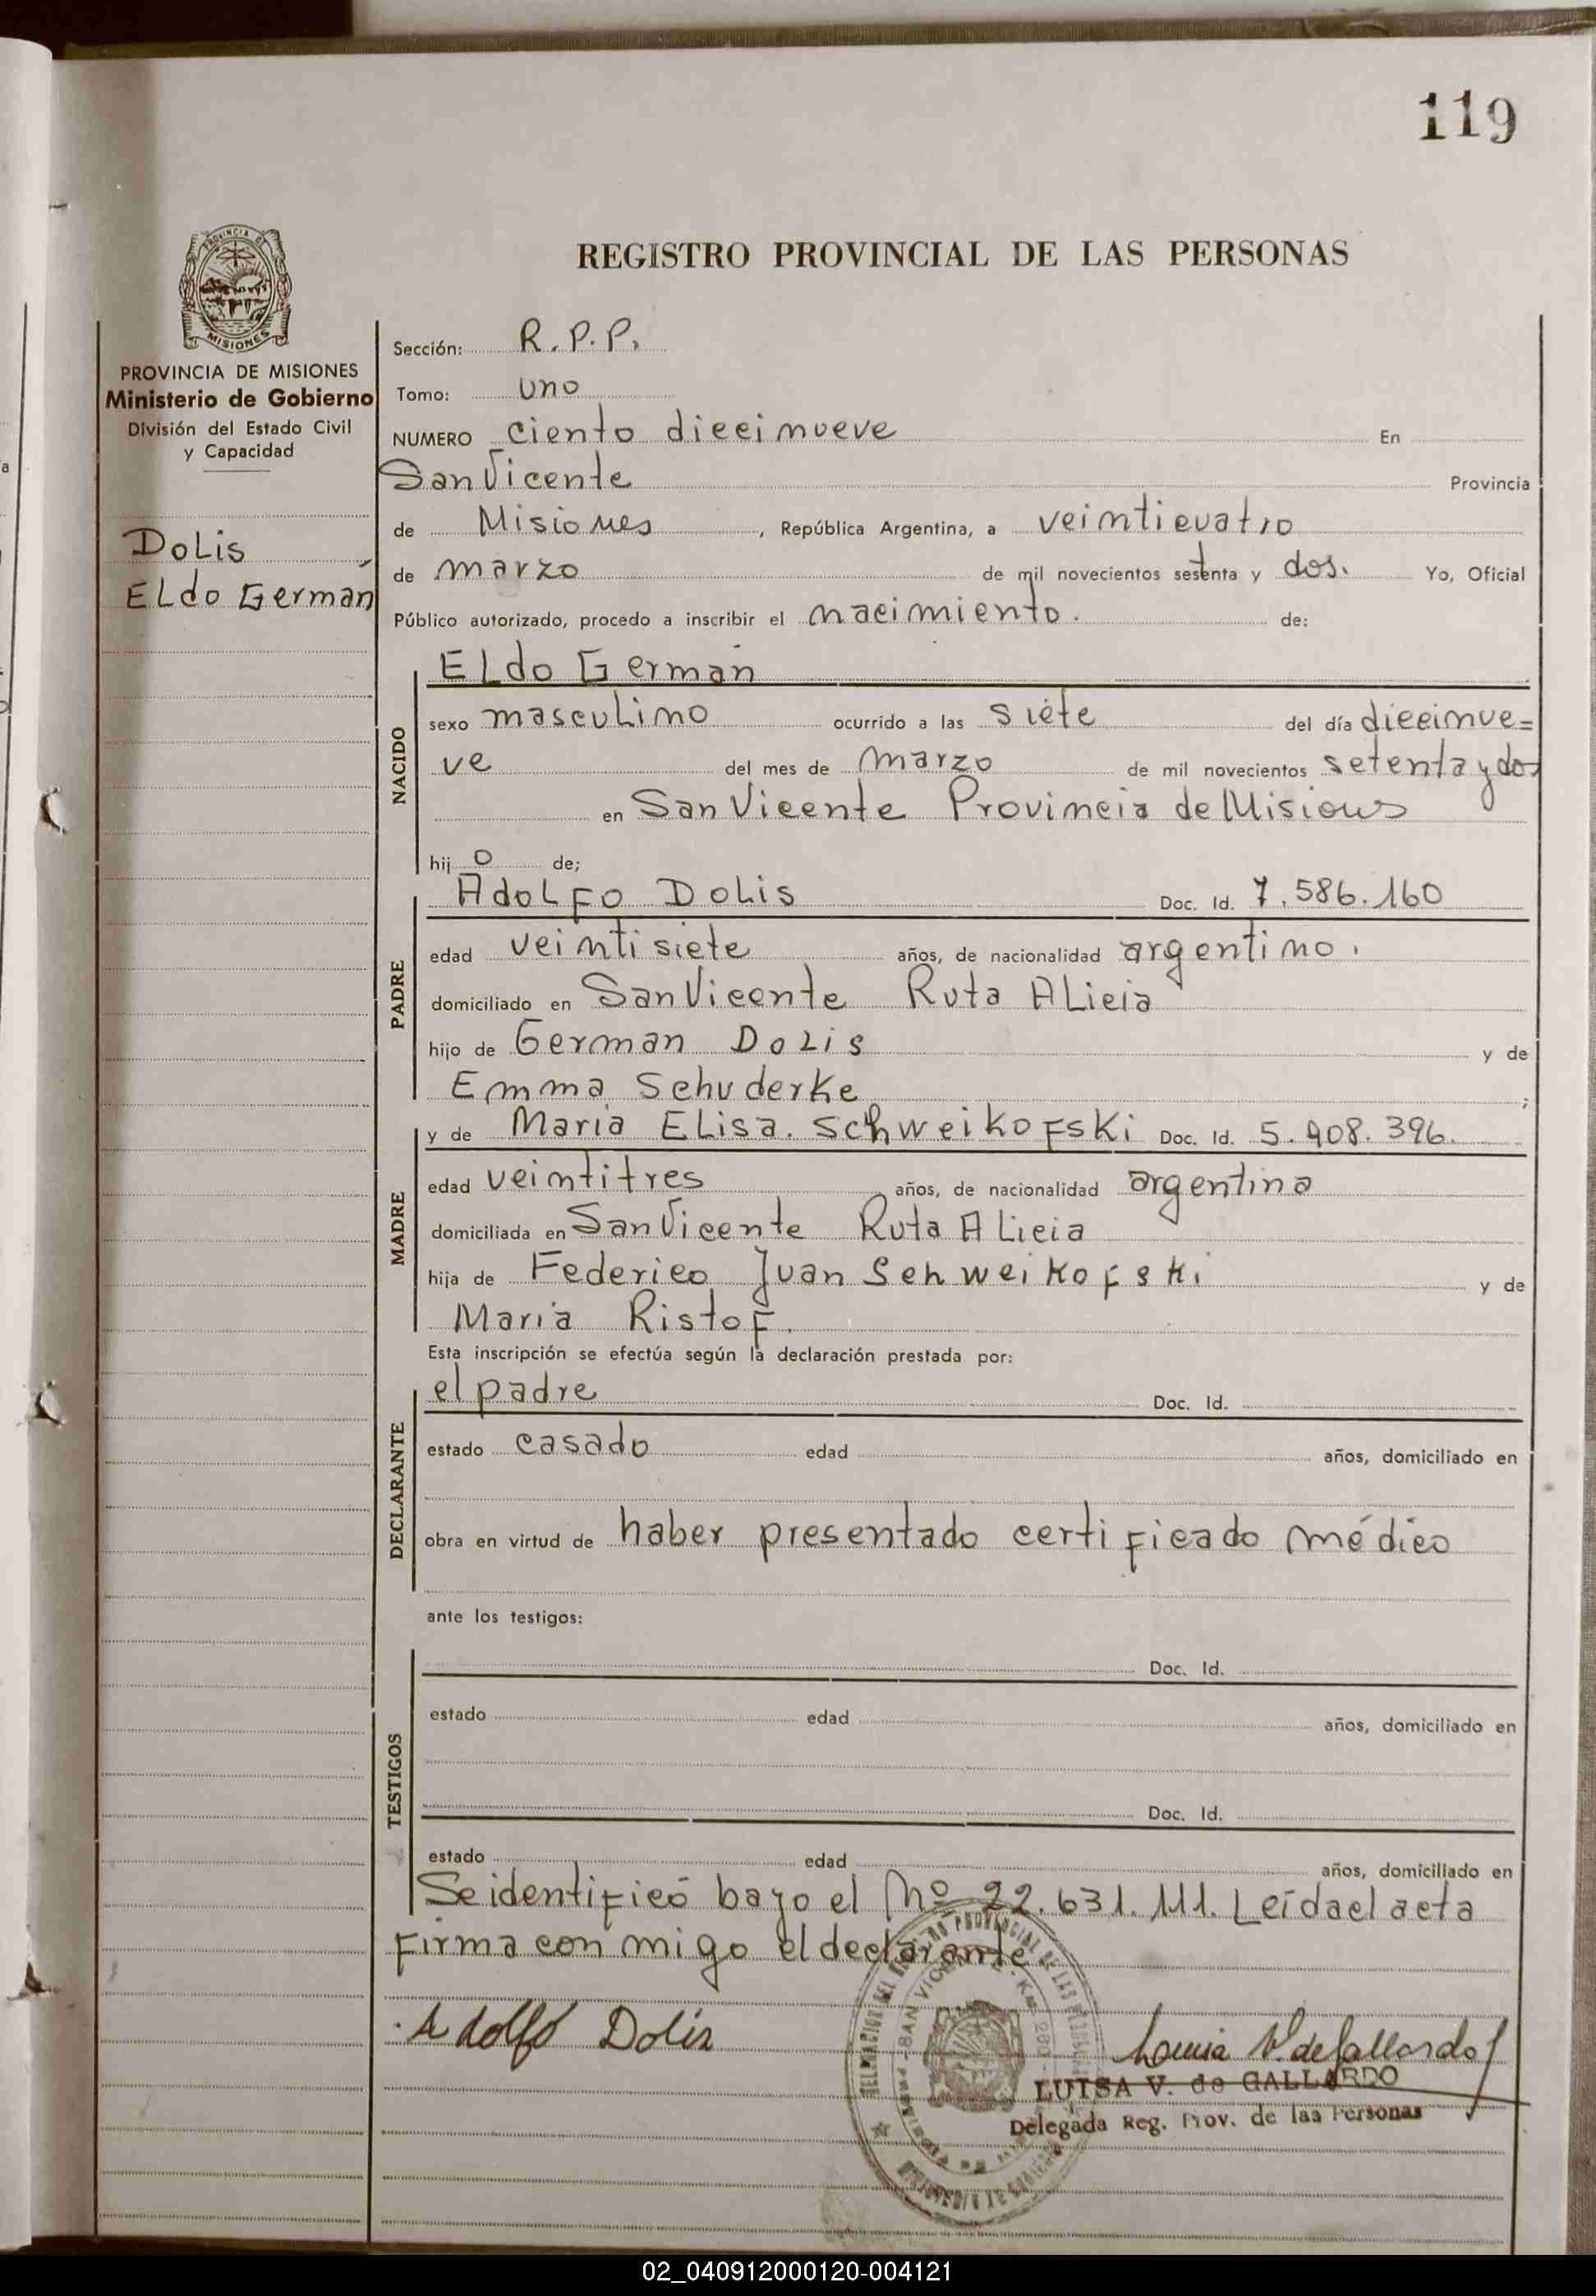 119
REGISTRO PROVINCIAL DE LAS PERSONAS
PROVINCIA DE
MISIONES
PROVINCIA DE MISIONES
Ministerio de Gobierno
División del Estado Civil
y Capacidad
Dolis
Eldo Germán
Sección: R.P.P.
Tomo: uno
NUMERO ciento diecinueve En
San Vicente Provincia
de Misiones, República Argentina, a veinticuatro
de marzo de mil novecientos setenta y dos. Yo, Oficial
Público autorizado, procedo a inscribir el nacimiento. de:
NACIDO
Eldo German
sexo masculino ocurrido a las siete del día diecinue=
ve del mes de marzo de mil novecientos setenta y dos
en San Vicente Provincia de Misiones
hijo de;
PADRE
Adolfo Dolis Doc. Id. 7.586.160
edad veintisiete años, de nacionalidad argentino.
domiciliado en San Vicente Ruta Alicia
hijo de German Dolis y de
Emma Schuderke ;
MADRE
y de Maria Elisa. Schweikofski Doc. Id. 5.908.396.
edad veintitres años, de nacionalidad argentina
domiciliada en San Vicente Ruta Alicia
hija de Federico Juan Schweikofski y de
Maria Ristof.
Esta inscripción se efectúa según la declaración prestada por:
DECLARANTE
el padre Doc. Id.
estado casado edad años, domiciliado en
obra en virtud de haber presentado certificado médico
ante los testigos:
TESTIGOS
Doc. Id.
estado edad años, domiciliado en
Doc. Id.
estado edad años, domiciliado en
Se identificó bajo el Nº 22.631.111. Leída el acta
firma conmigo el declarante
Adolfo Dolis
Luisa V. de Gallardo
LUISA V. de GALLARDO
Delegada Reg. Prov. de las Personas
02_040912000120-004121